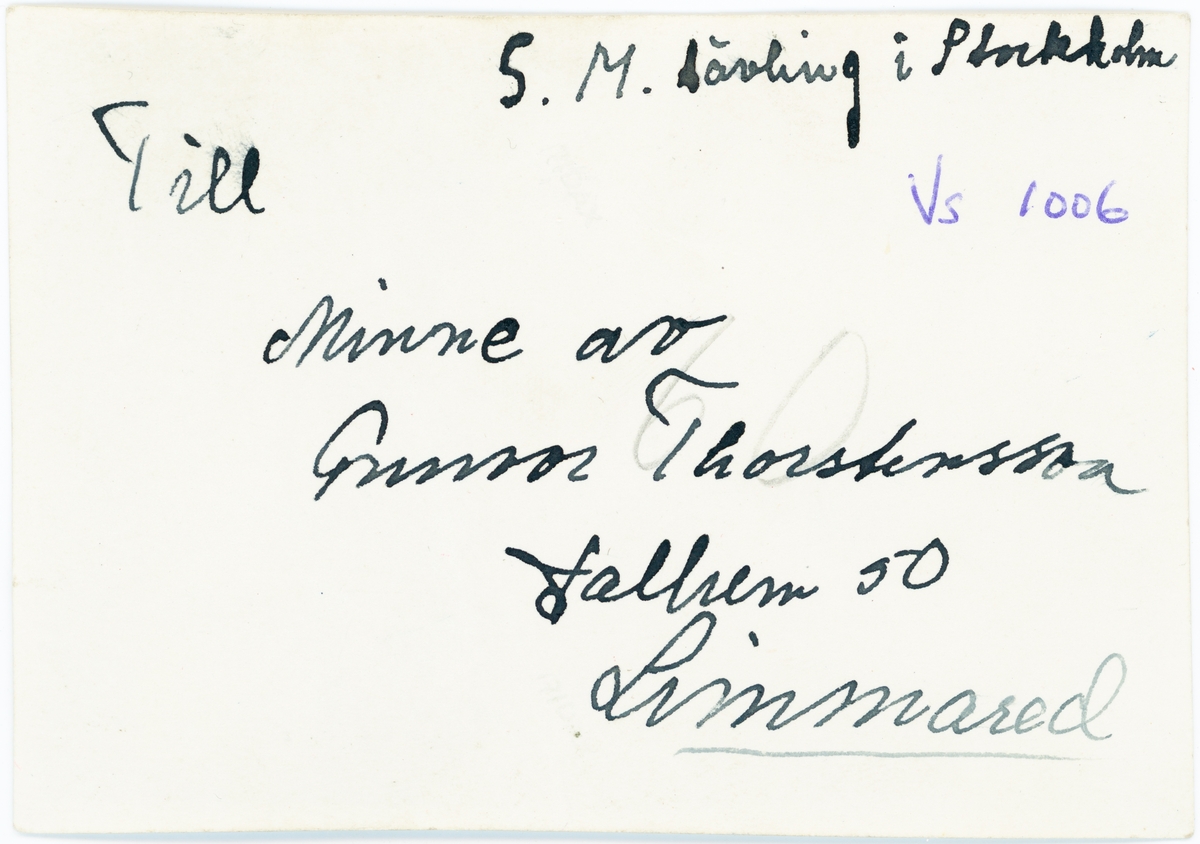 S. M. tävling i Stockholm
Till
Vs 1006
Minne av
Gunvor Thorstensson
Dalhem 50
Limmared